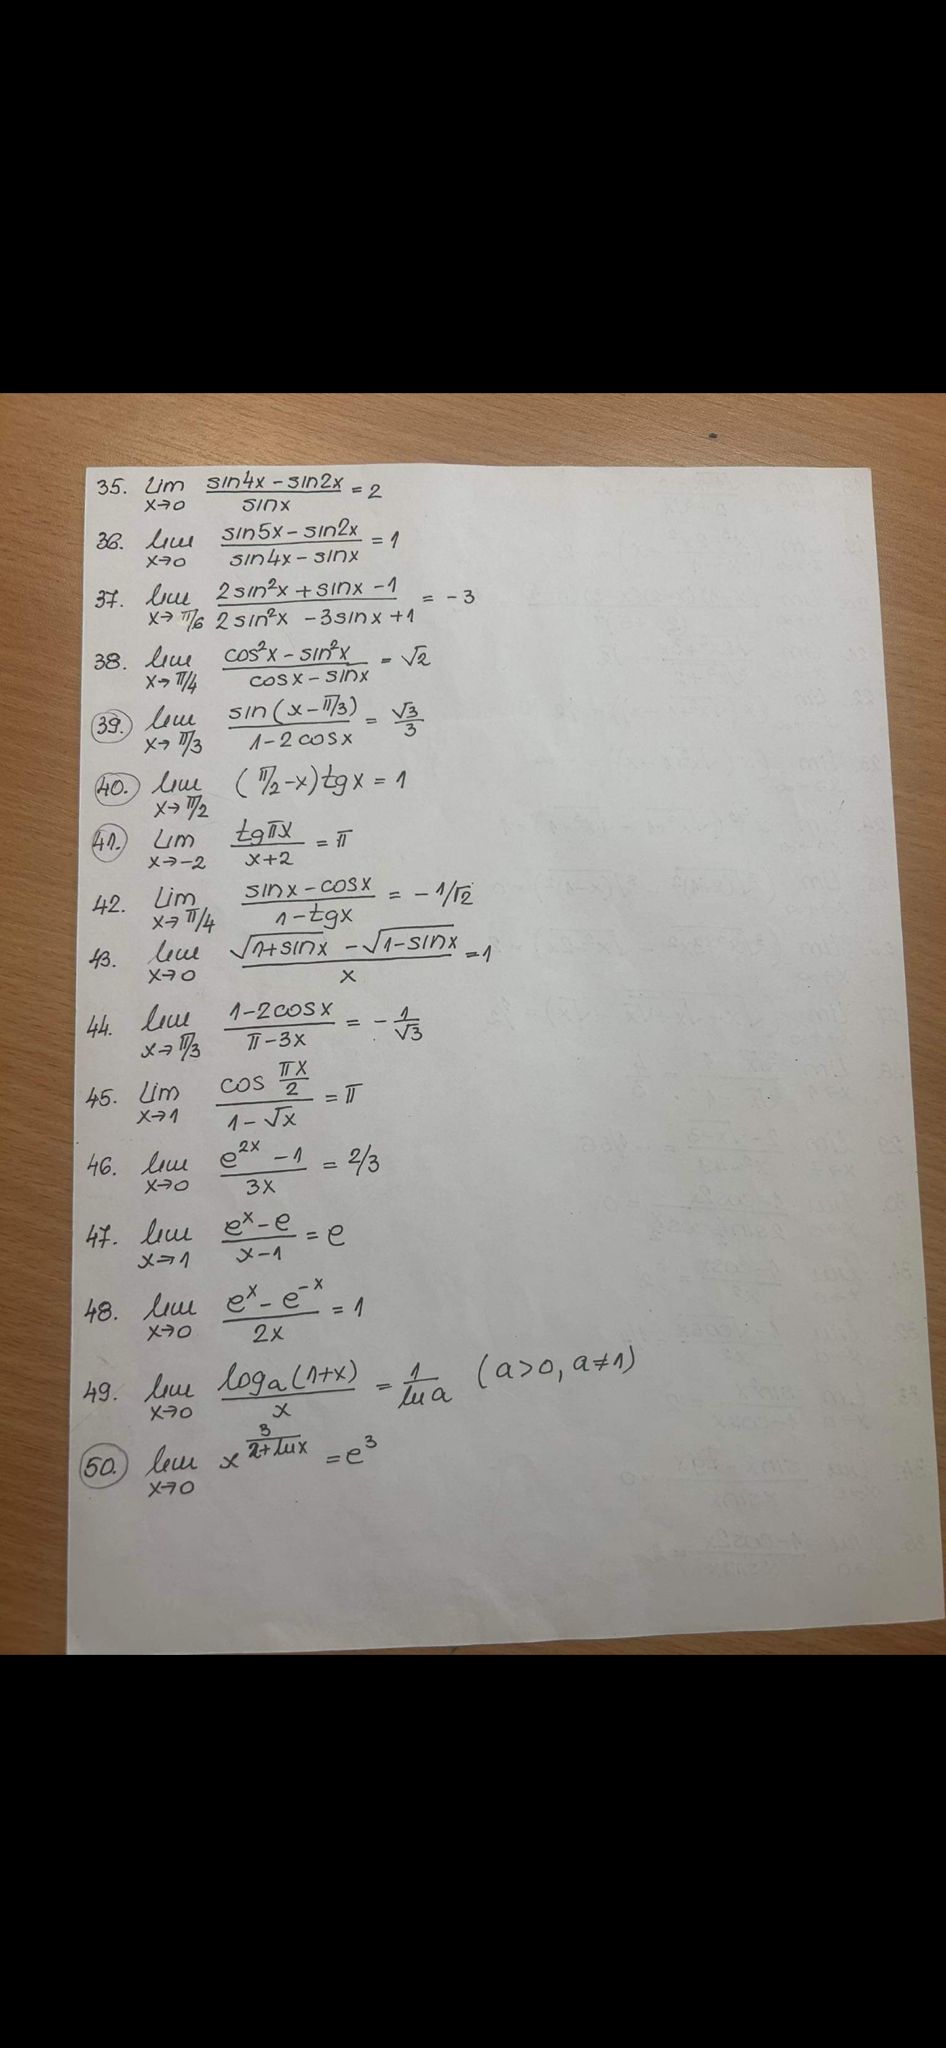 35. lim x→0 (sin4x - sin2x)/(sinx) = 2
36. lim x→0 (sin5x - sin2x)/(sin4x - sinx) = 1
37. lim x→π/6 (2sin²x + sinx - 1)/(2sin²x - 3sinx + 1) = -3
38. lim x→π/4 (cos²x - sin²x)/(cosx - sinx) = √2
39. lim x→π/3 (sin(x - π/3))/(1 - 2cosx) = √3/3
40. lim x→π/2 (π/2 - x)tgx = 1
41. lim x→-2 (tgπx)/(x+2) = π
42. lim x→π/4 (sinx - cosx)/(1 - tgx) = -1/√2
43. lim x→0 (√(1+sinx) - √(1-sinx))/x = 1
44. lim x→π/3 (1 - 2cosx)/(π - 3x) = -1/√3
45. lim x→1 (cos πx/2)/(1 - √x) = π
46. lim x→0 (e^(2x) - 1)/(3x) = 2/3
47. lim x→1 (e^x - e)/(x - 1) = e
48. lim x→0 (e^x - e^(-x))/(2x) = 1
49. lim x→0 (logₐ(1+x))/x = 1/(ln a) (a>0, a≠1)
50. lim x→0 x^(3/(2+lnx)) = e³